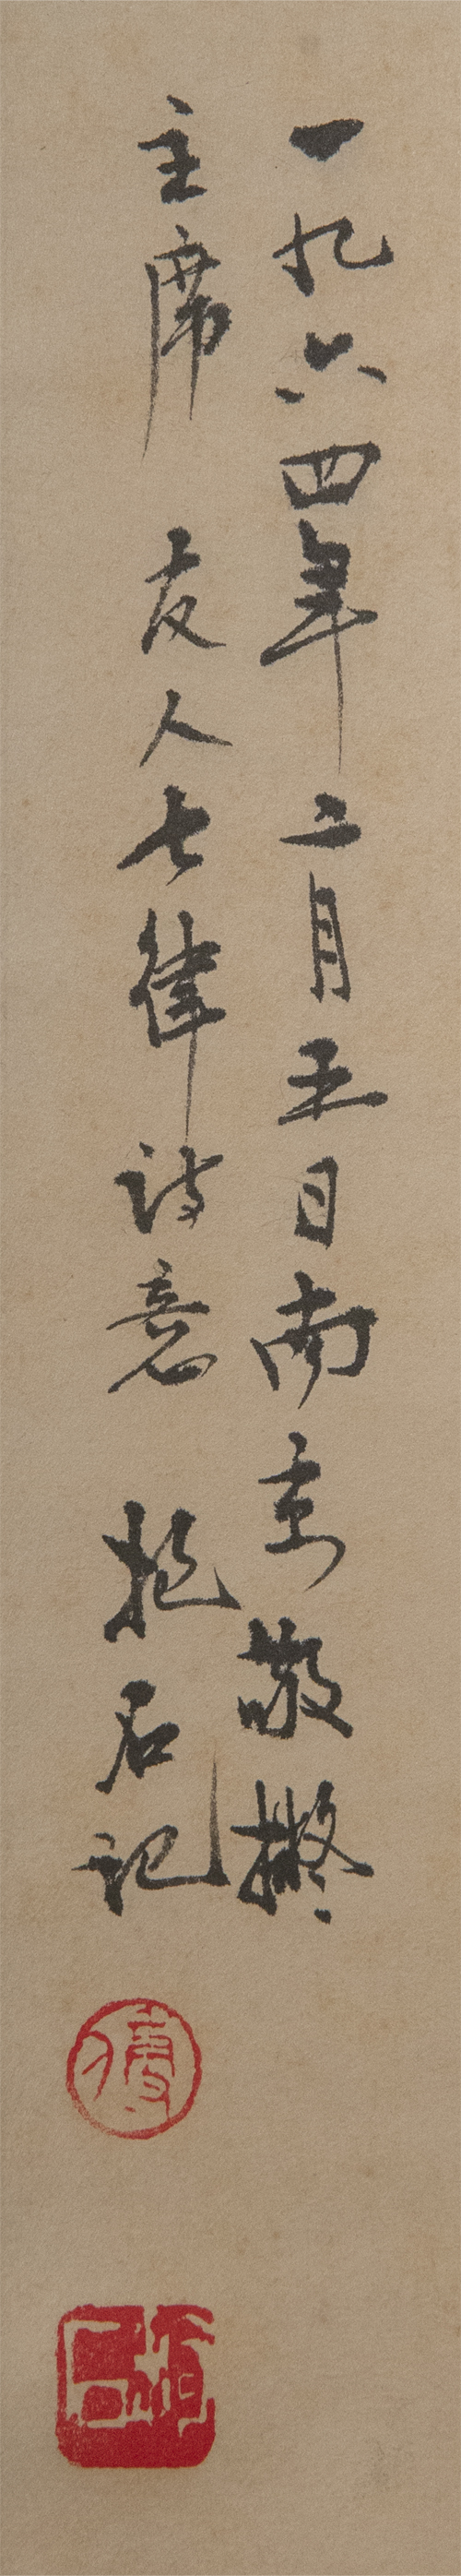 一九六四年二月五日南京敬擬
主席 友人七律詩意 抱石記
傅